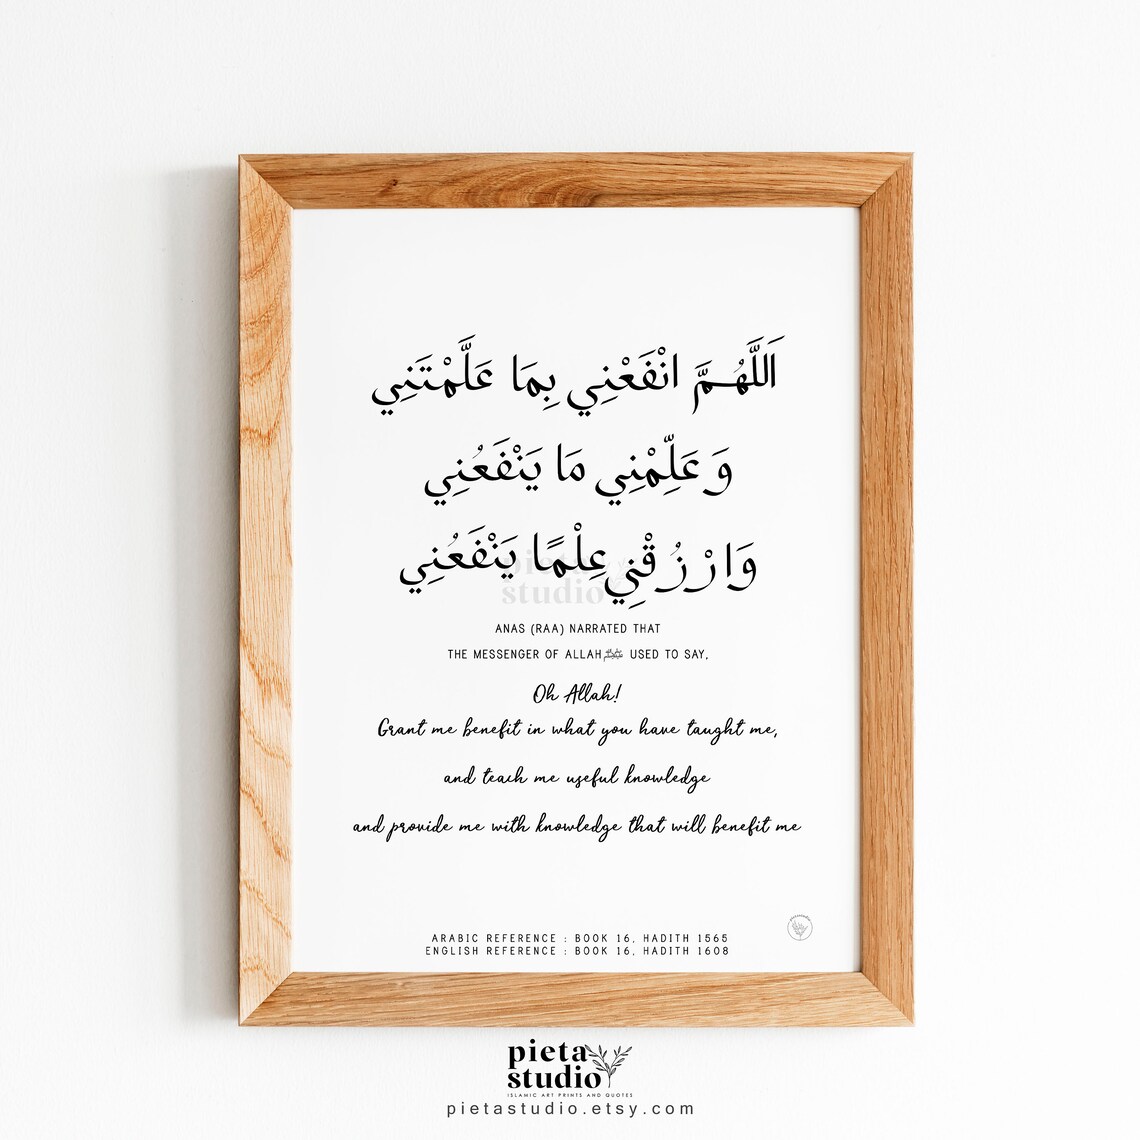 اَللَّهُمَّ انْفَعْنِي بِمَا عَلَّمْتَنِي
وَ عَلِّمْنِي مَا يَنْفَعُنِي
وَارْزُقْنِي عِلْمًا يَنْفَعُنِي
pieta
studio
ANAS (RAA) NARRATED THAT
THE MESSENGER OF ALLAH ﷺ USED TO SAY,
Oh Allah!
Grant me benefit in what you have taught me,
and teach me useful knowledge
and provide me with knowledge that will benefit me
ARABIC REFERENCE : BOOK 16, HADITH 1565
ENGLISH REFERENCE : BOOK 16, HADITH 1608
pieta
studio
ISLAMIC ART PRINTS AND QUOTES
pietastudio.etsy.com